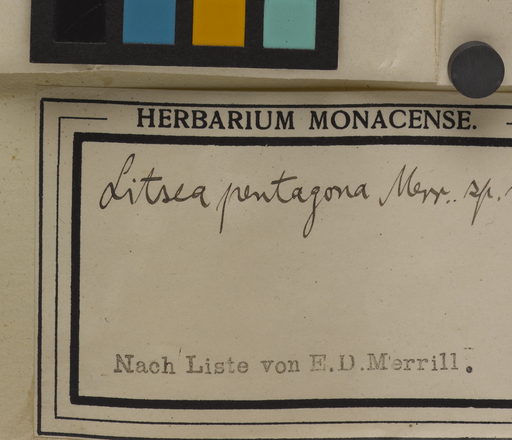 HERBARIUM MONACENSE.
Litsea pentagona Merr. sp.
Nach Liste von E.D.Merrill.